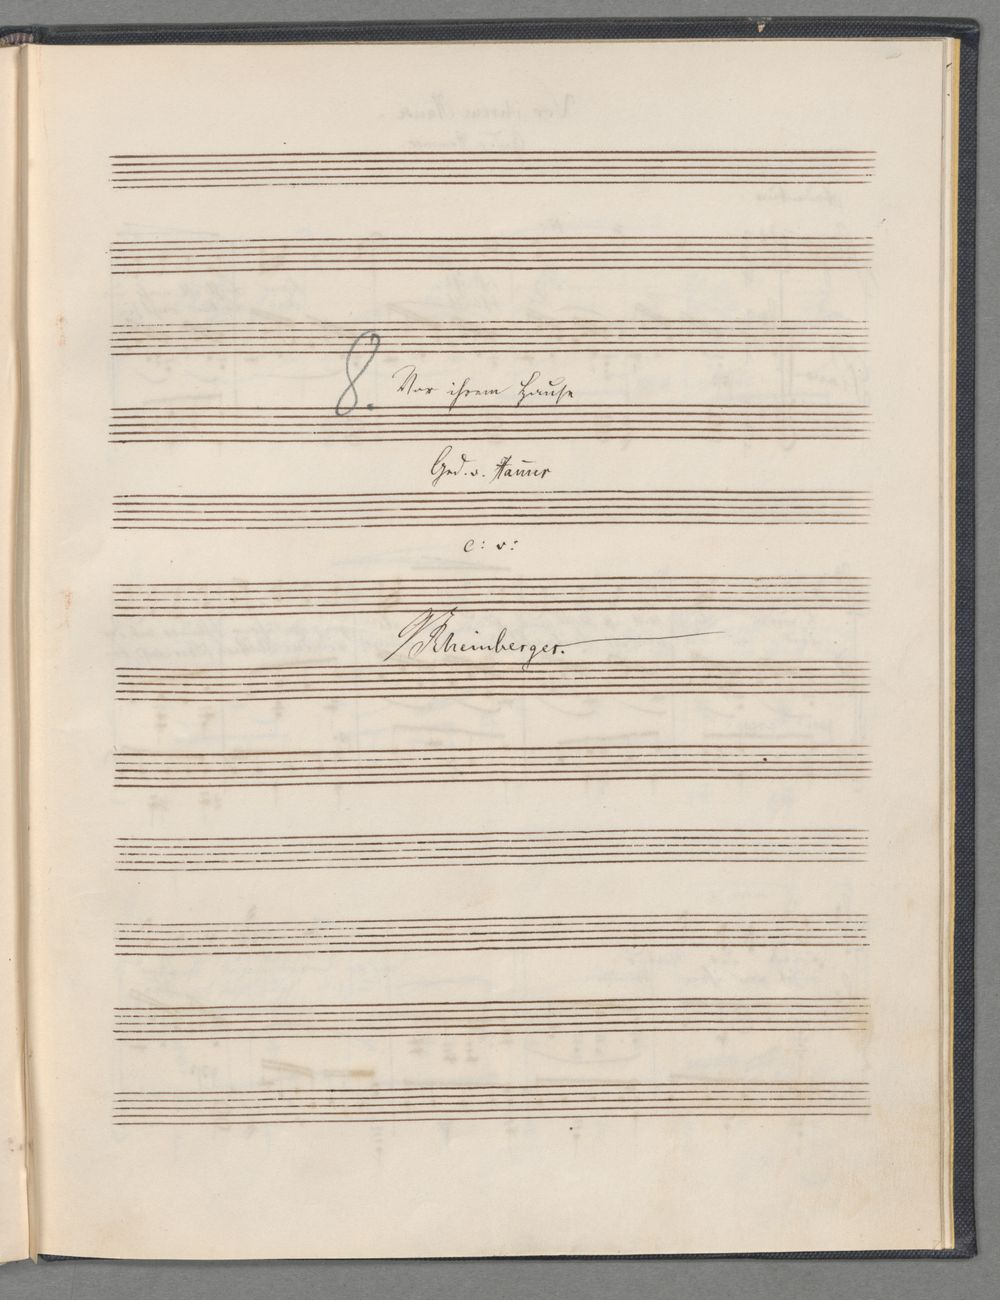 8. Vor ihrem Hause
Ged. v. Ham̅er
c: v:
J Rheinberger.